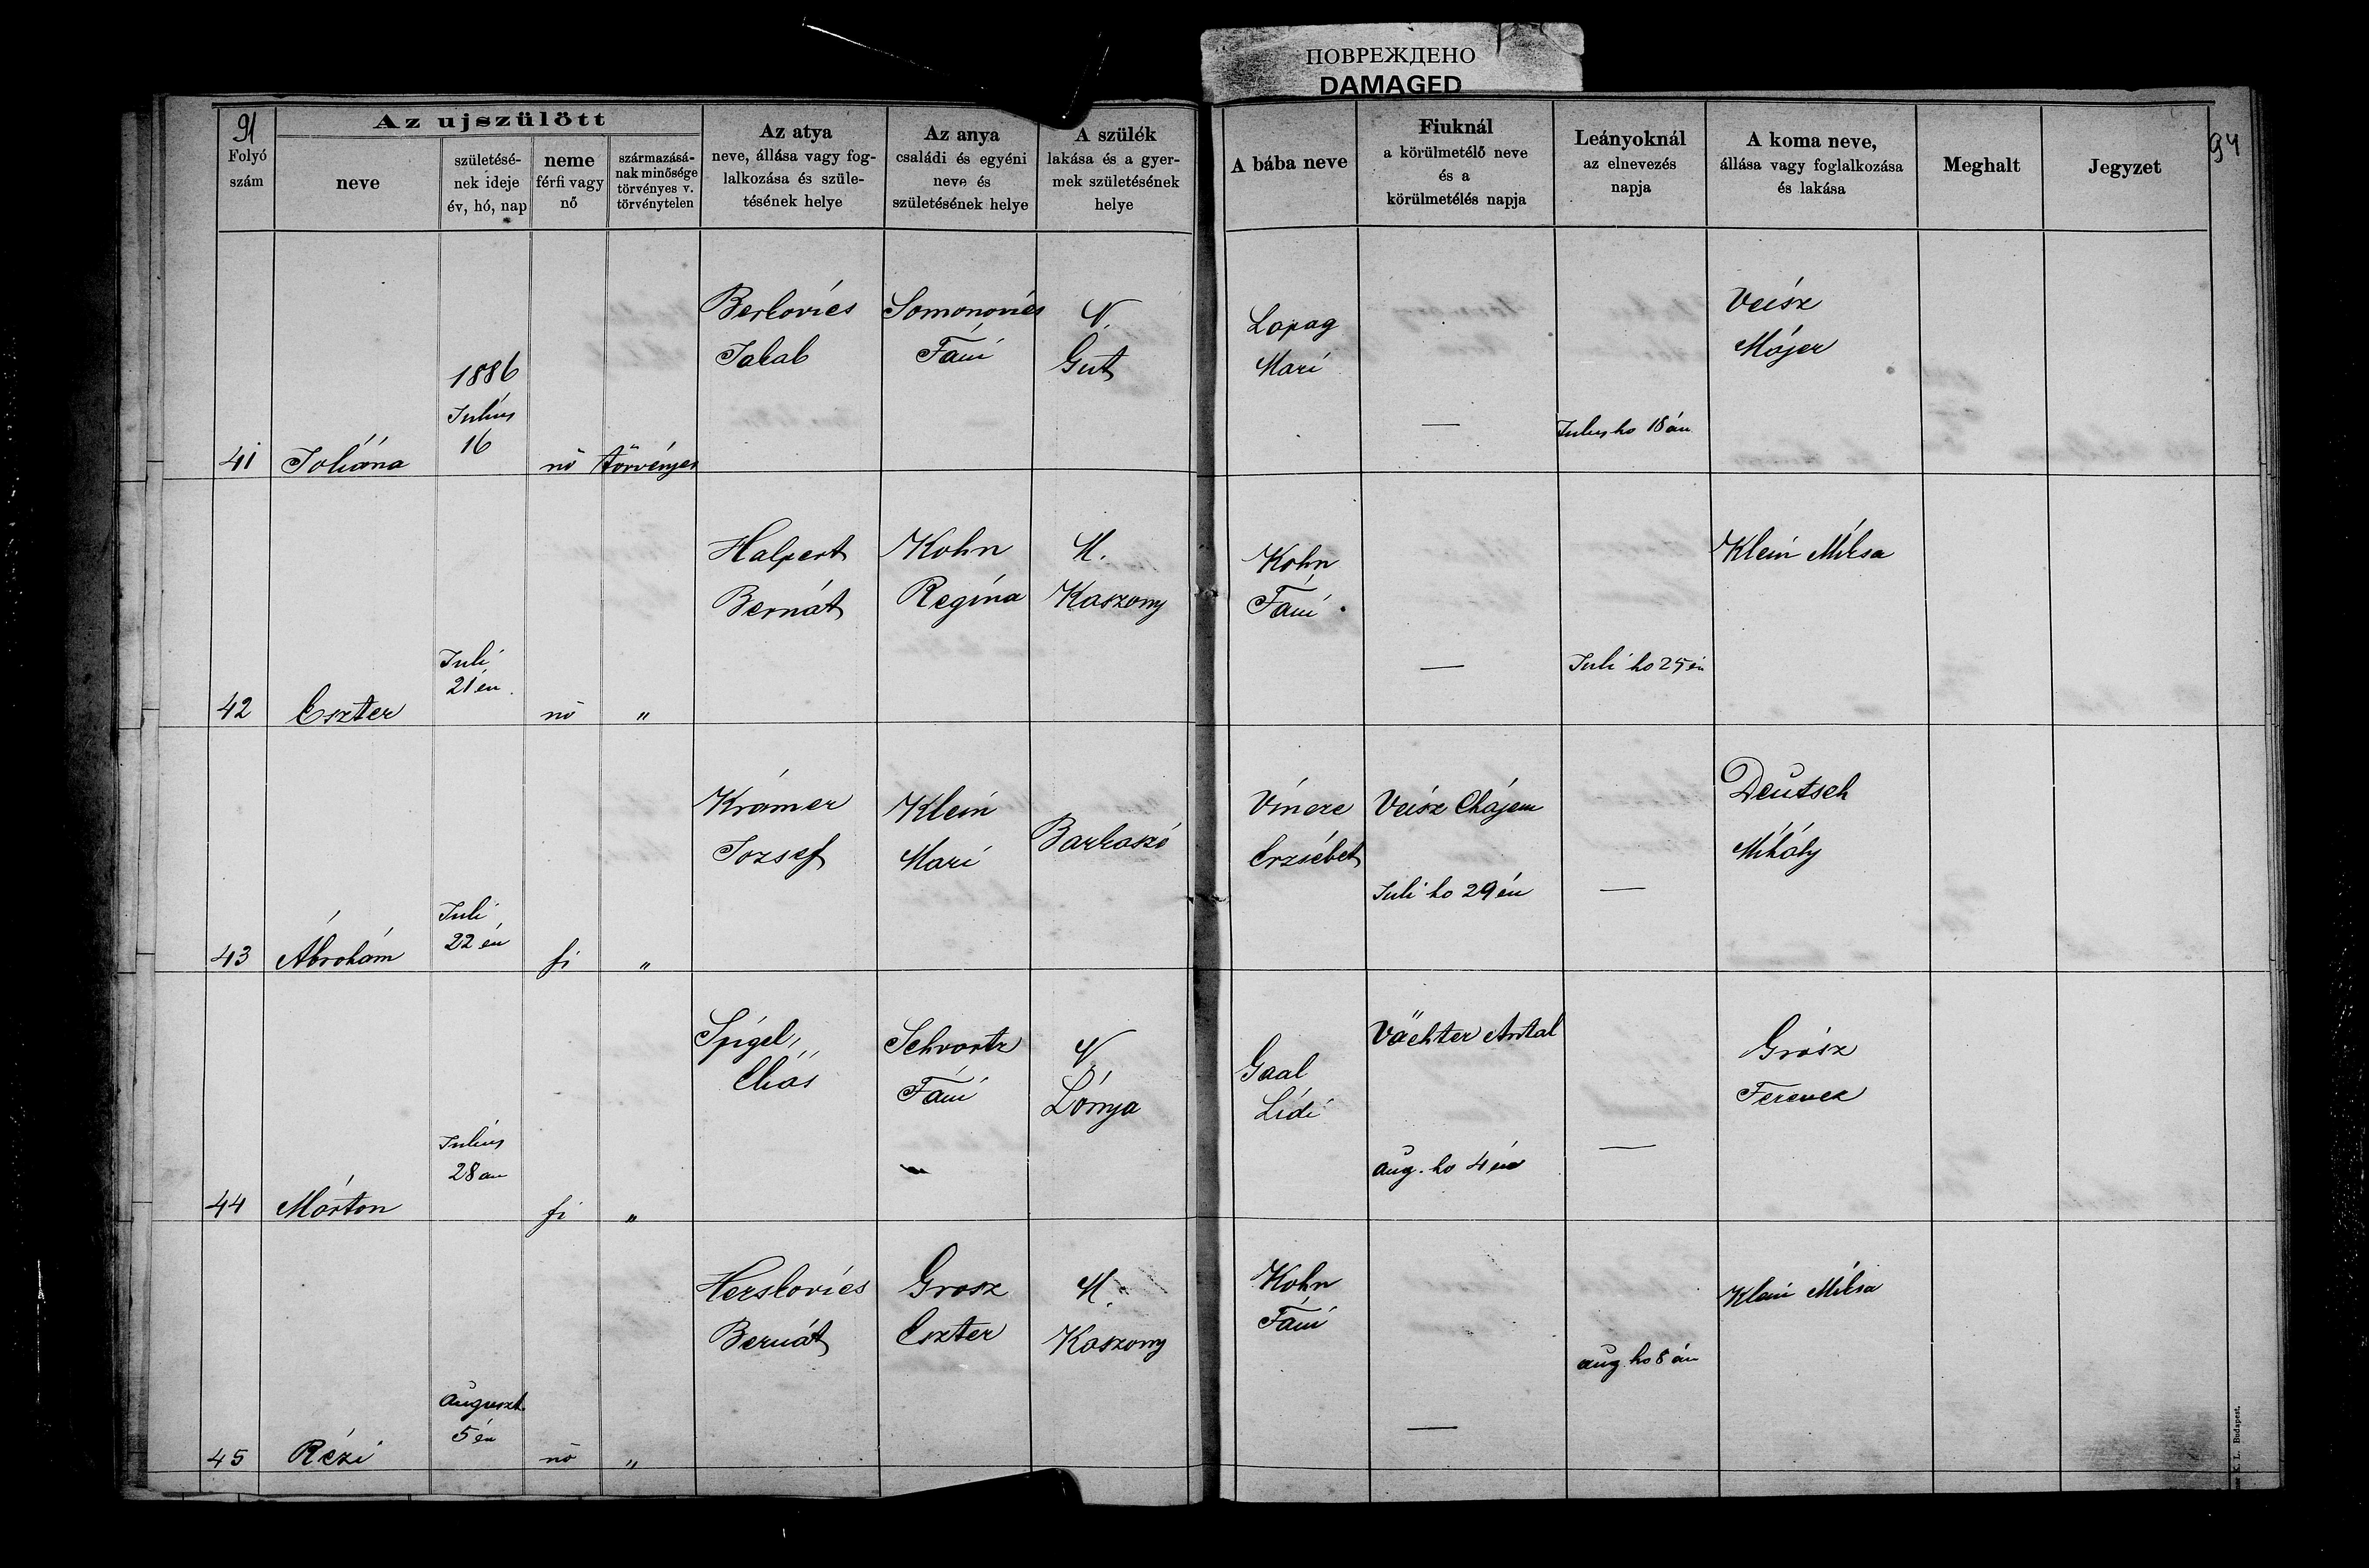 ПОВРЕЖДЕНО
DAMAGED
91
Folyó
szám
Az ujszülött
neve
születésé-
nek ideje
év, hó, nap
neme
férfi vagy
nő
származásá-
nak minősége
törvényes v.
törvénytelen
Az atya
neve, állása vagy fog-
lalkozása és szüle-
tésének helye
Az anya
családi és egyéni
neve és
születésének helye
A szülék
lakása és a gyer-
mek születésének
helye
A bába neve
Fiuknál
a körülmetélő neve
és a
körülmetélés napja
Leányoknál
az elnevezés
napja
A koma neve,
állása vagy foglalkozása
és lakása
Meghalt
Jegyzet
94
41
Joliána
1886
Julius
16
nő
törvényes
Berkovics
Jakab
Somonovics
Fáni
N.
Gut
Lapag
Mari
—
Julius ho 18án
Veisz
Májer
42
Eszter
Juli
21én
nő
"
Halpert
Bernát
Kohn
Regina
M.
Kaszony
Kohn
Fáni
—
Juli ho 25én
Klein Miksa
43
Ábrohám
Juli
22én
fi
"
Krámer
Jozsef
Klein
Mari
Barkaszó
Vincze
Erzsébet
Veisz Chájem
Juli ho 29én
—
Deutsch
Mihály
44
Márton
Julius
28an
fi
"
Spigel
Eliás
Schvartz
Fáni
N.
Lónya
Gaal
Lidi
Vächter Antal
aug. ho 4én
—
Grósz
Ferencz
45
Rézi
auguszt.
5én
nő
"
Herskovics
Bernát
Grosz
Eszter
M.
Kaszony
Kohn
Fáni
—
aug. ho 8án
Klein Miksa
K. L. Budapest.